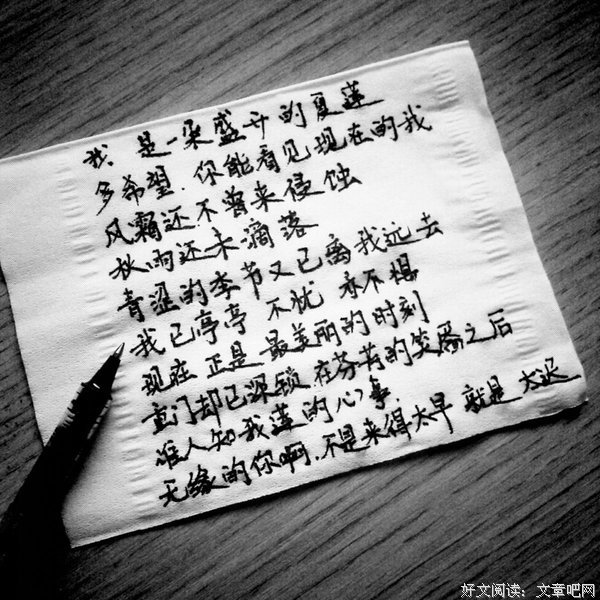 我 是一朵盛开的夏莲
多希望.你能看见现在的我
风霜还不曾来侵蚀
秋雨还未滴落
青涩的季节又已离我远去
我已亭亭 不忧 亦不惧
现在 正是最美丽的时刻
重门却已深锁 在芬芳的笑靥之后
谁人知我莲的心事.
无缘的你啊.不是来得太早 就是 太迟
好文阅读：文章吧网